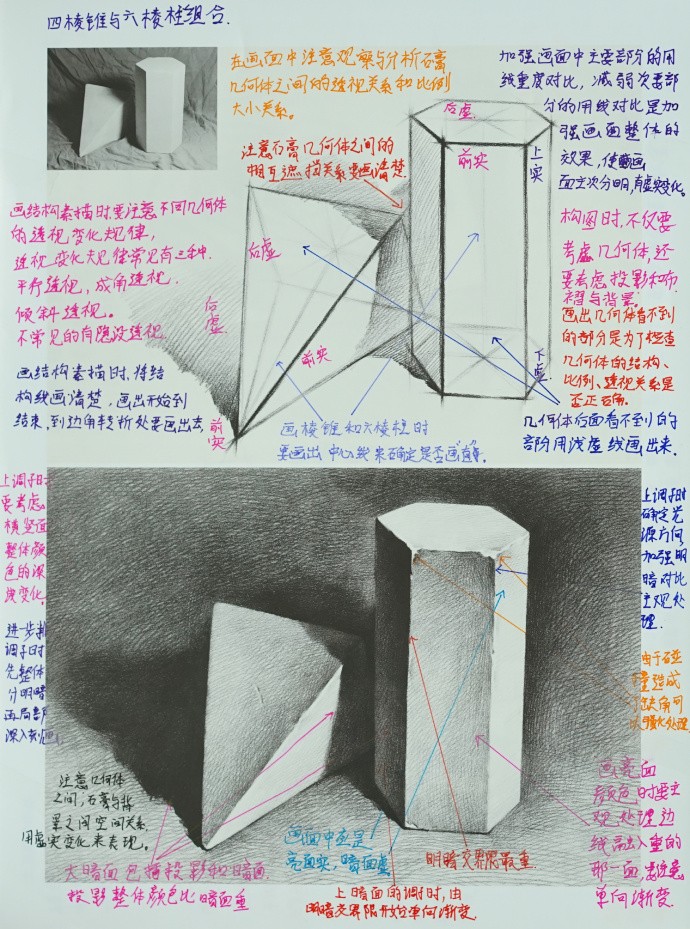 四棱锥与六棱柱组合.
在画面中注意观察与分析石膏
几何体之间的透视关系和比例
大小关系。
加强画面中主要部分的用
线重度对比，减弱次要部
分的用线对比是加
强画面整体的
效果，使画
面主次分明，有虚实变化。
注意石膏几何体之间的
相互遮挡关系要画清楚.
后虚.
前实
上实
画结构素描时要注意不同几何体
的透视变化规律，
透视变化规律常见有三种.
平行透视，成角透视.
倾斜透视。
不常见的有隐没透视
后虚
后虚
前实
构图时,不仅要
考虑几何体,还
要考虑投影和布
褶与背景。
画出几何体看不到
的部分是为了检查
几何体的结构、
比例、透视关系是
否正确.
下虚
画结构素描时,将结
构线画清楚，画出开始到
结束,到边角转折处要画出去.
前实
画棱锥和六棱柱时
要画出中心线来确定是否画"直"。
几何体后面看不到的
部分用浅虚线画出来.
上调子时
要考虑
横竖面
整体颜
色的深
浅变化.
上调子时
确定光
源方向,
加强明
暗对比
主观处
理.
进步
调子时
先整体
分明暗
画局部
深入
由于碰
造成
缺角可
以强化处理
注意几何体
之间,石膏与背
景之间空间关系,
用虚实变化来表现。
大暗面包括投影和暗面.
投影整体颜色比暗面重
画面中应是
亮面实，暗面虚
明暗交界限最重.
上暗面的调时,由
明暗交界限开始单向渐变.
画亮面
颜色时要主
观处理边
线融入重的
那一面,注意
单向渐变.